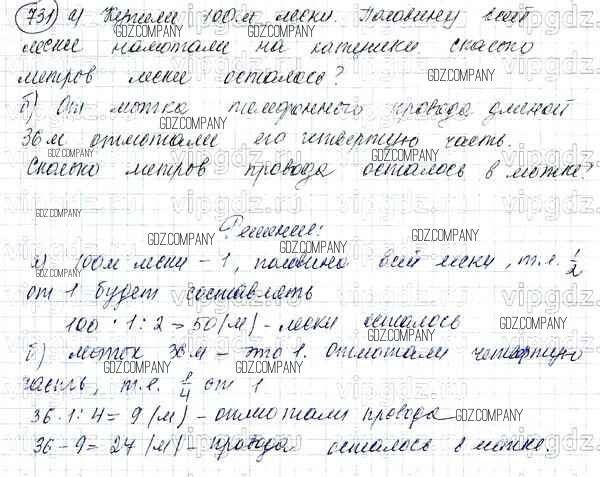 731 а) Купили 100 м лески. Половину всей
лески намотали на катушки. Сколько
метров лески осталось?
б) От мотка телефонного провода длиной
36 м отмотали его четвертую часть.
Сколько метров провода осталось в мотке?
Решение:
а) 100 м лески – 1, половина всей лески, т.е. 1/2
от 1 будет составлять
100 · 1 : 2 = 50 (м) – лески осталось
б) моток 36 м – это 1. Отмотали четвертую
часть, т.е. 1/4 от 1
36 · 1 : 4 = 9 (м) – отмотали провода
36 – 9 = 27 (м) – провода осталось в мотке.
GDZ.COMPANY
vipgdz.com